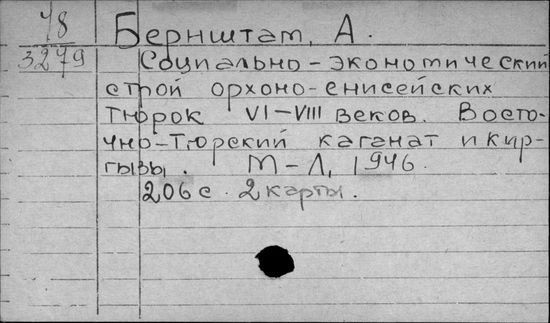 48
Бернштам, А.
3279
Социально-экономический
строй орхоно-енисейских
Тюрок VI-VIII веков. Восто-
чно-Тюрский каганат и кир-
гызы. М-Л, 1946.
206 с. 2 карты.